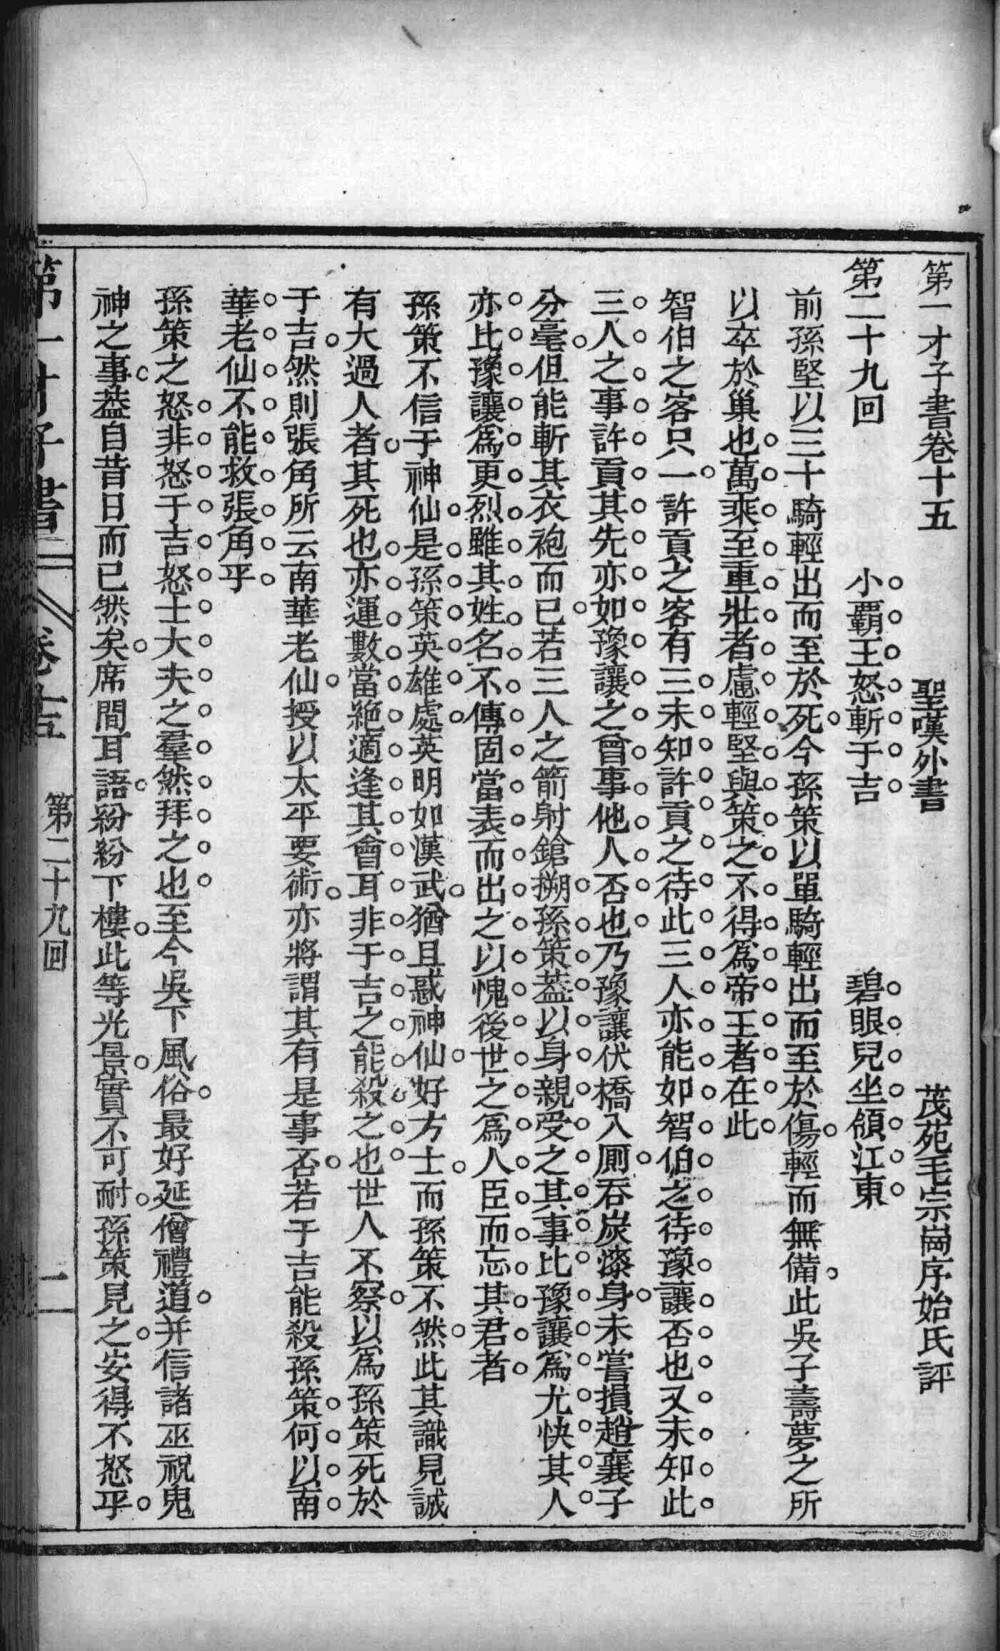 第一才子書卷十五
聖嘆外書
茂苑毛宗崗序始氏評
第二十九回
小覇王怒斬于吉
碧眼兒坐領江東
前孫堅以三十騎輕出而至於死今孫策以單騎輕出而至於傷輕而無備此吳子壽夢之所
以卒於巢也萬乘至重壯者慮輕堅與策之不得爲帝王者在此
智伯之客只一許貢之客有三未知許貢之待此三人亦能如智伯之待豫讓否也又未知此
三人之事許貢其先亦如豫讓之曾事他人否也乃豫讓伏橋入厠吞炭漆身未嘗損趙襄子
分毫但能斬其衣袍而已若三人之箭射鎗搠孫策葢以身親受之其事比豫讓爲尤快其人
亦比豫讓爲更烈雖其姓名不傳固當表而出之以愧後世之爲人臣而忘其君者
孫策不信于神仙是孫策英雄處英明如漢武猶且惑神仙好方士而孫策不然此其識見誠
有大過人者其死也亦運數當絕適逢其會耳非于吉之能殺之也世人不察以爲孫策死於
于吉然則張角所云南華老仙授以太平要術亦將謂其有是事否若于吉能殺孫策何以南
華老仙不能救張角乎
孫策之怒非怒于吉怒士大夫之羣然拜之也至今吳下風俗最好延僧禮道并信諸巫祝鬼
神之事葢自昔日而已然矣席間耳語紛紛下樓此等光景實不可耐孫策見之安得不怒乎
第一才子書
卷十五
第二十九回
一